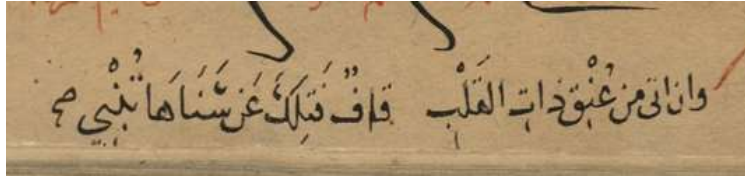 وان اتى من عُنْقِ ذاتِ القَلْبِ قافٌ فَتِلكَ عَن سَنَاهَا تُنْبِي صح